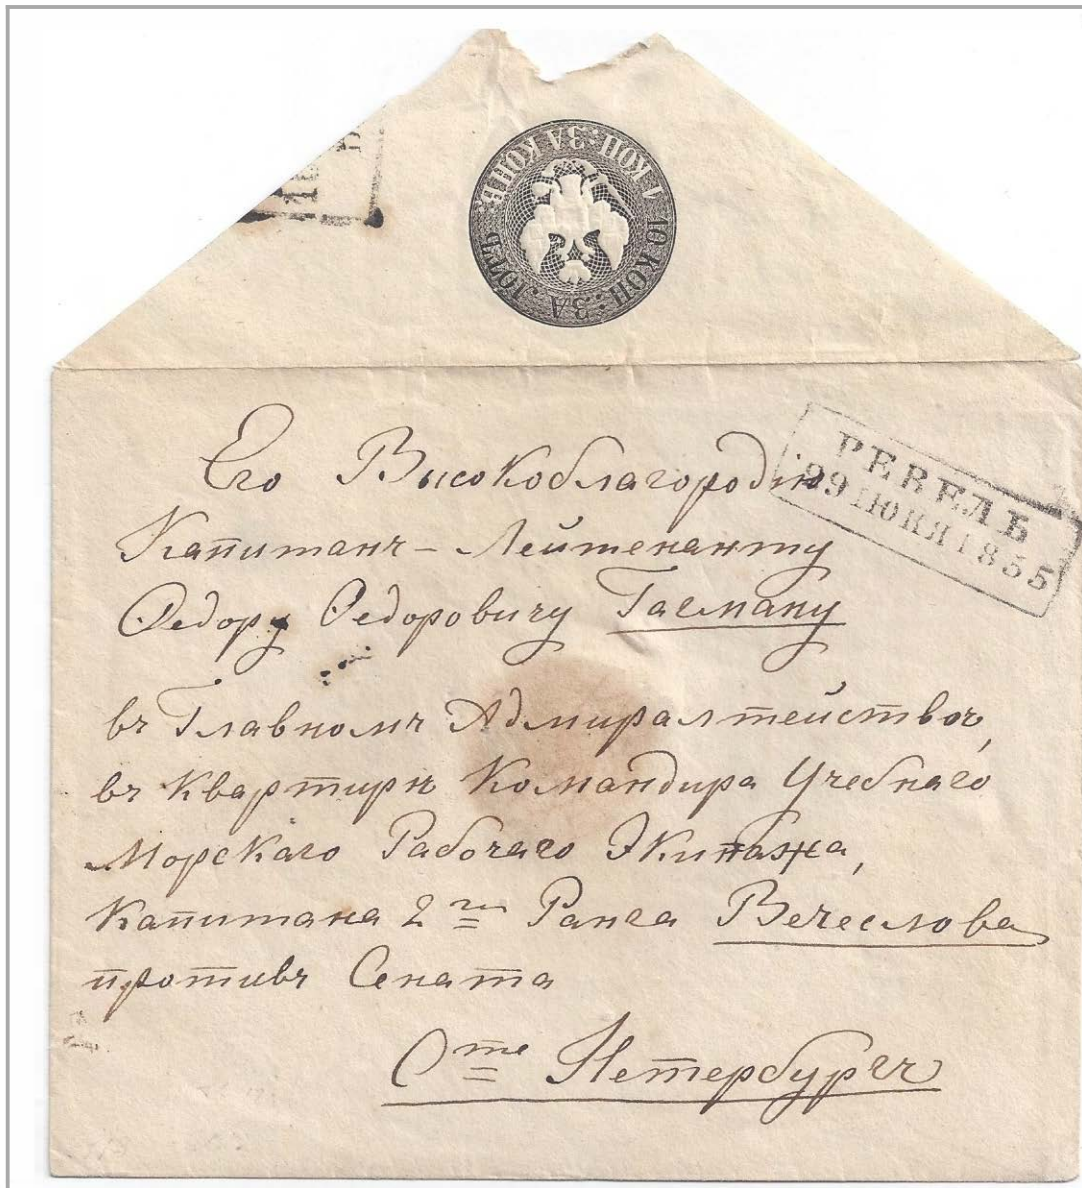 10 КОП: ЗА ЛОТЪ. 1 КОП: ЗА КОНВ:
РЕВЕЛЬ
29 ІЮНЯ 1855
Его Высокоблагородію
Капитанъ-Лейтенанту
Ѳедору Ѳедоровичу Гасману
въ Главномъ Адмиралтействѣ,
въ квартирѣ Командира Учебнаго
Морскаго Рабочаго Экипажа,
Капитана 2го Ранга Вечеслова
противъ Сената
Сте Петербургъ